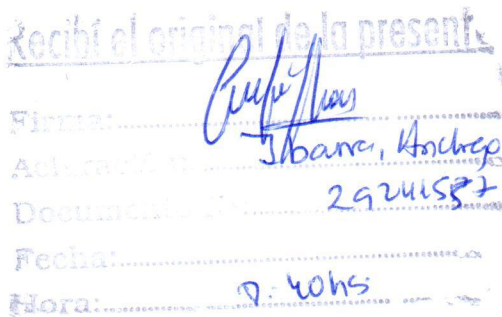 Recibí el original de la presente
Firma:
Aclaración: Ibarra, Andrea
Documento
Fecha:
Hora: 9:40hs